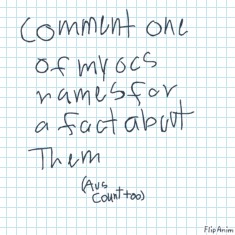 Comment one
of my ocs
names for
a fact about
Them
(Aus
Count too)
FlipAnim